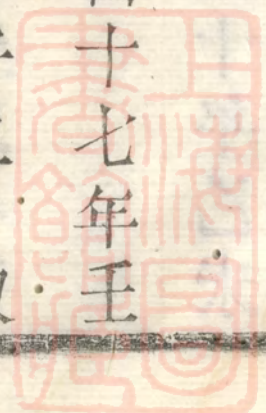 十七年壬
上海圖
書館藏